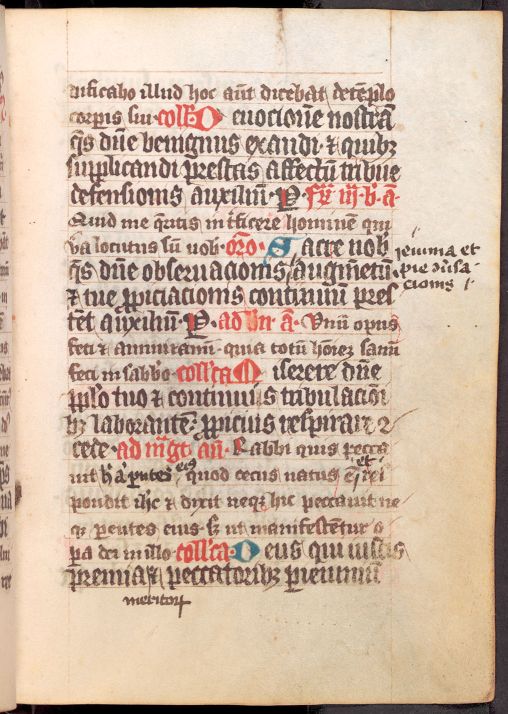 dificabo illud hoc aūt dicebat de tēplo
corpis sui· coll̄· Deuocionē nostrā
q̄s dn̄e benignus exaudi· ⁊ quibꝫ
supplicandi prestas affectū tribue
defensionis auxiliū· P· Fr̄ iij· b· ā·
Quid me q̄ritis int̄ficere hominē qui
v̄a locutus sū uob· Or̄o· Sacre nob
q̄s dn̄e obseruacionis augmētū·
⁊ tue ꝓpiciacionis continuū pres
tēt auxiliū· P· ad bn̄· ā· Vnū opus
feci ⁊ ammiramī· quia totū hōiēꝫ sanū
feci in sabb̄o· coll̄ca Miserere dn̄e
pplo tuo ⁊ continuis tribulacioni
bꝫ laborantē· ꝓpicius respirare 2
cede· ad m̄gt̄· an̄· Rabbi quis pecca
uit h̄ a' pntes eiꝰ quod cecus natus ē· et rēs
pondit ihc ⁊ dixit neqꝫ hic peccauit ne
qꝫ parentes eius· sꝫ ut manifestētur o
pa dei in illo· coll̄ca· Deus qui iustis
premia peccatoribꝫ p ieiuniū
meritoꝝ
ieiunia et
pie
cionis